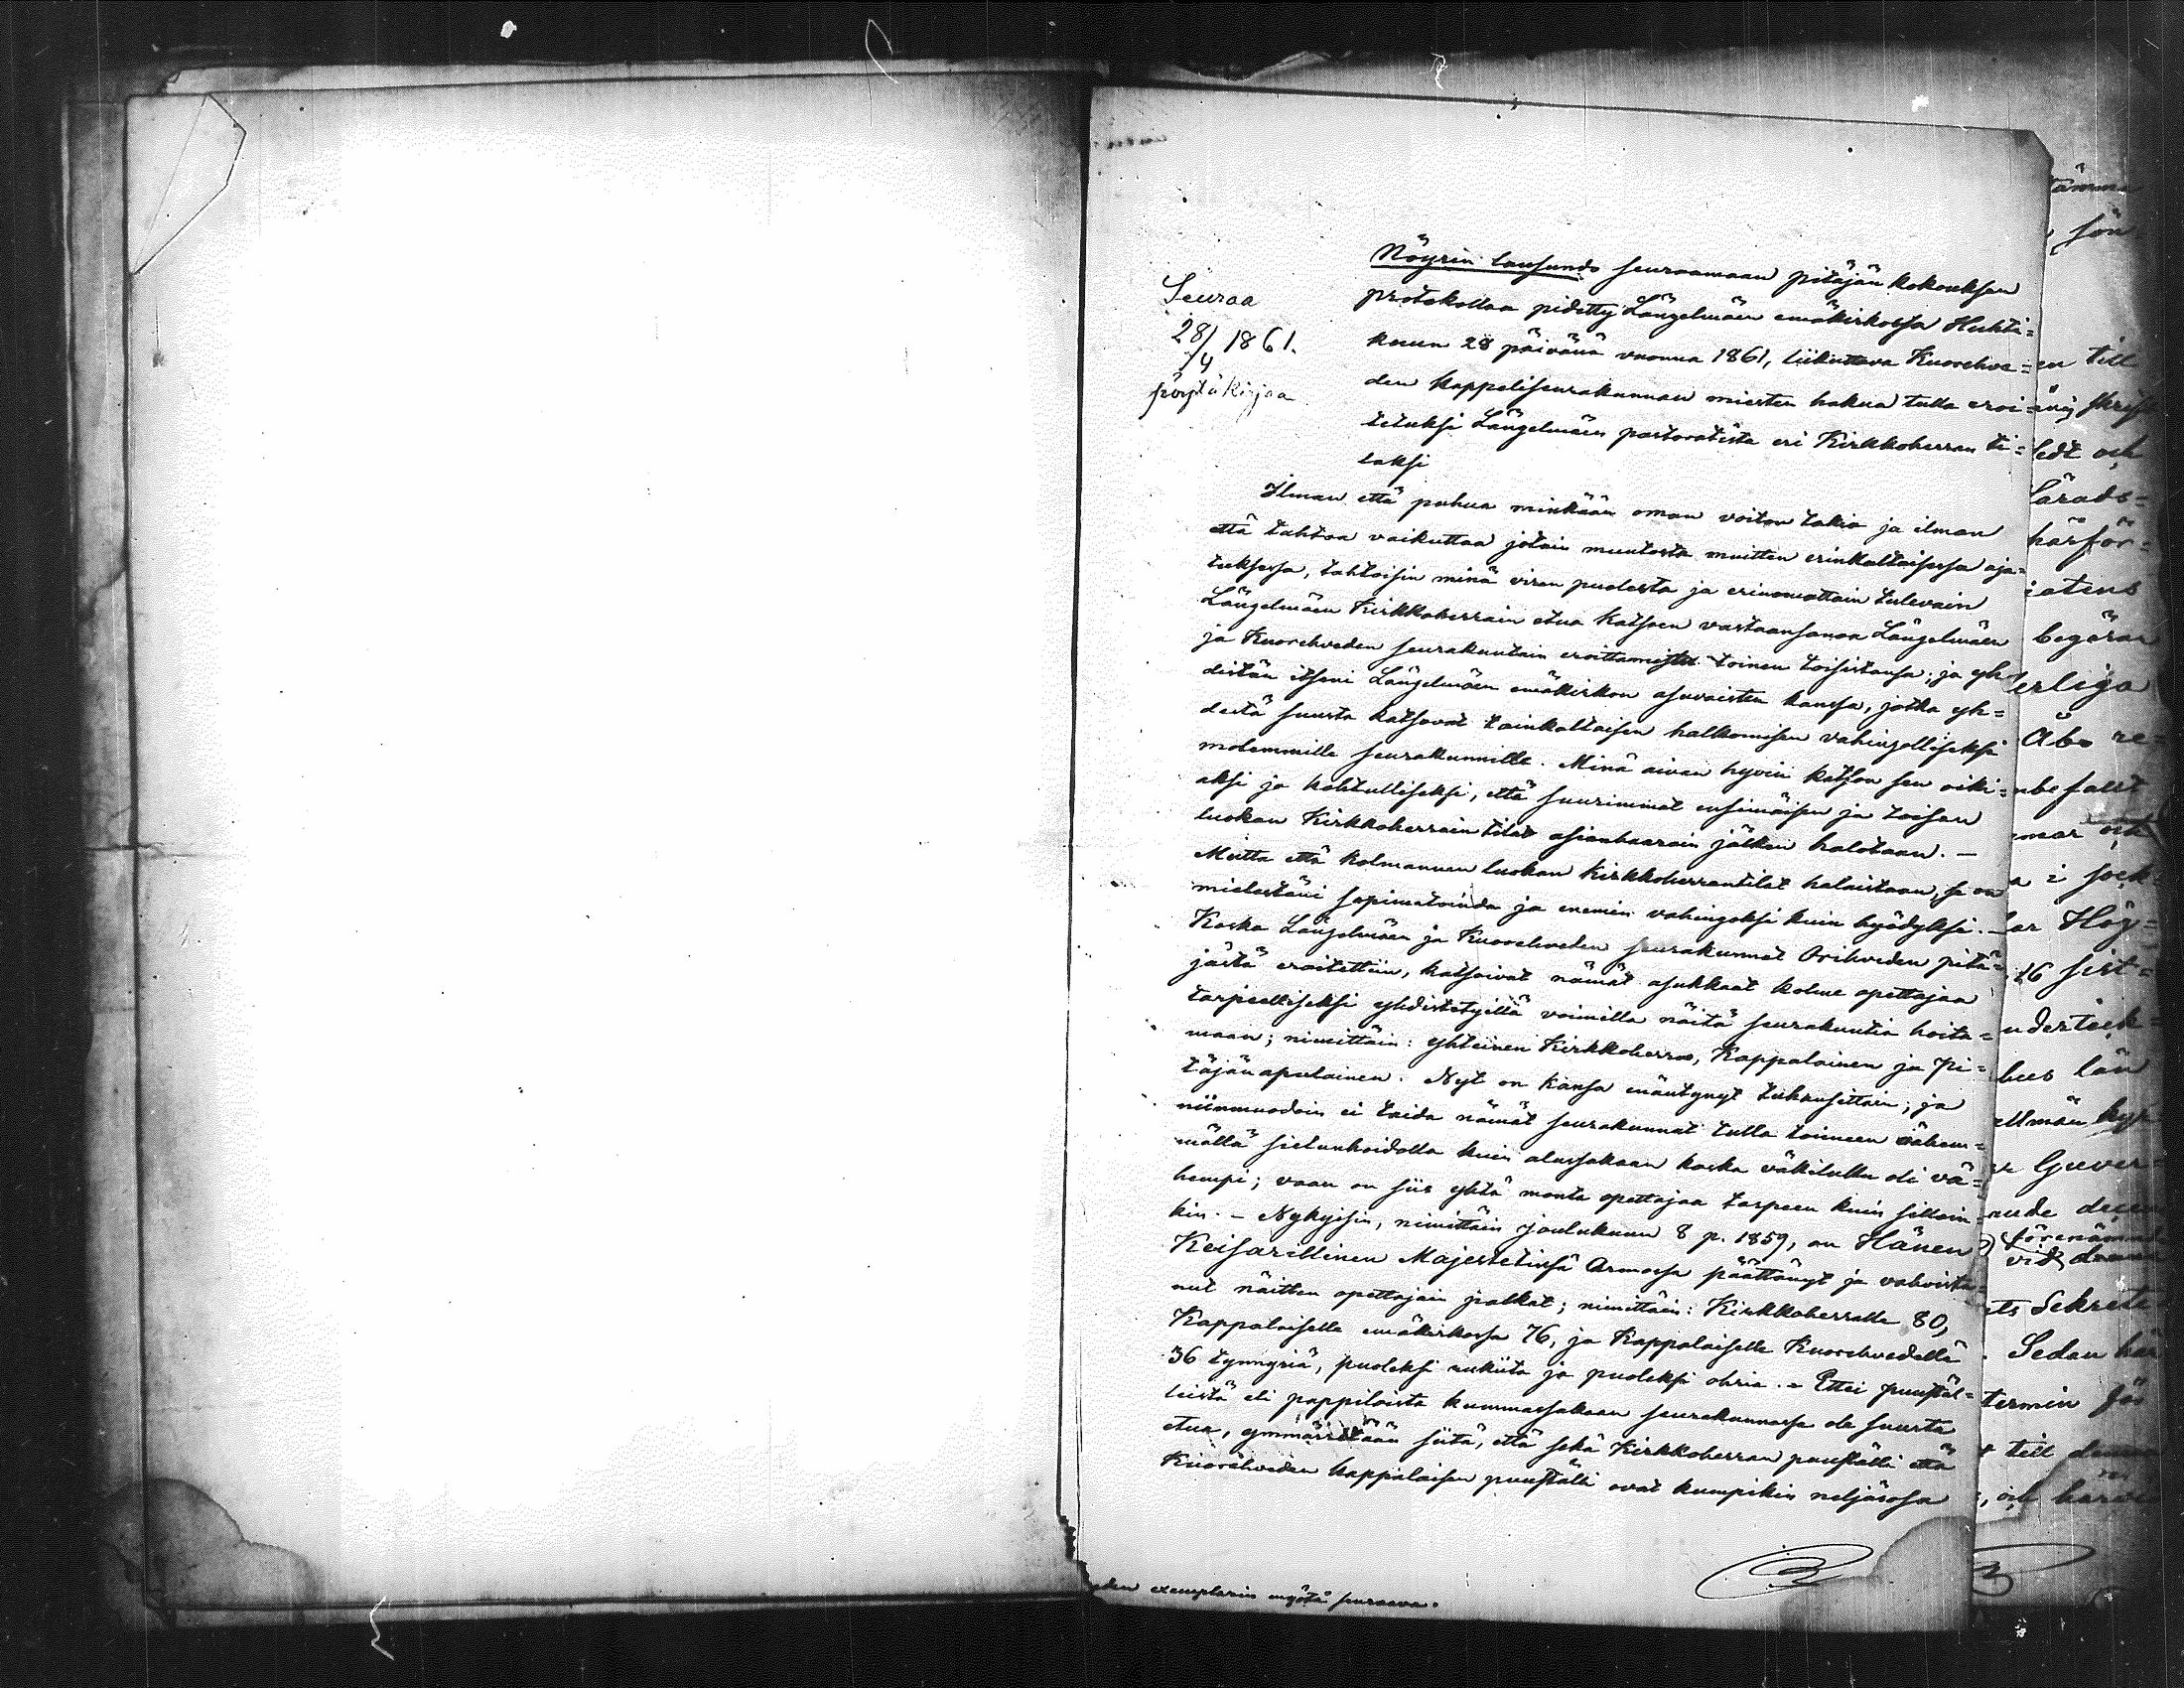 Seuraa
28/4 1861.
pöytäkirjaa
Nöyrin lausundo seuraamaan pitäjän kokouksen
protokollaa pidetty Längelmäen emäkirkossa Huhti=
kuun 28 päivänä vuonna 1861, liikuttava Kuorehve=
den kappeliseurakunnan miesten hakua tulla eroi=
tetuksi Längelmäen pastoratista eri Kirkkoherran ti=
laksi
Ilman että puhua minkään oman voiton takia ja ilman
että tahtoa vaikuttaa jotain muutosta muitten erinkaltaisessa aja=
tuksessa, tahtoisin minä viran puolesta ja erinomattain tulevain
Längelmäen Kirkkoherrain etua katsoen vastaansanoa Längelmäen
ja Kuorehveden seurakuntain eroittamista toinen toisistansa; ja yh=
distän itseni Längelmäen emäkirkon asuvaisten kanssa, jotka yh=
destä suusta katsovat tainkaltaisen halkomisen vahingolliseksi
molemmille seurakunnille. Minä aivan hyvin katson sen oiki=
aksi ja kohtulliseksi, että suurimmat ensimäisen ja toisen
luokan Kirkkoherrain tilat asianhaarain jälkeen halotaan. —
Mutta että kolmannen luokan kirkkoherrantilat halaistaan, se on
mielestäni sopimatoinda ja enemin vahingoksi kuin hyödyksi.
Koska Längelmäen ja Kuorehveden seurakunnat Orihveden pitä=
jästä eroitettiin, katsoivat nämät asukkaat kolme opettajaa
tarpeelliseksi yhdistetyillä voimilla näitä seurakuntia hoita=
maan; nimittäin: yhteinen Kirkkoherra, Kappalainen ja Pi=
täjänapulainen. Nyt on kansa enäntynyt tuhansittain; ja
niinmuodoin ei taida nämät seurakunnat tulla toimeen vähem=
mällä sielunhoidolla kuin alussakaan koska väkiluku oli vä=
hempi; vaan on siis yhtä monta opettajaa tarpeen kuin silloin=
kin. — Nykyisin, nimittäin joulukuun 8 p. 1859, on Hänen
Keisarillinen Majestetinsä Armossa päättänyt ja vahvista=
nut näitten opettajain palkat; nimittäin: Kirkkoherralle 80,
Kappalaiselle emäkirkossa 76, ja Kappalaiselle Kuorehvedellä
36 tynnyriä, puoleksi rukiita ja puoleksi ohria. — Ettei puustäl=
leistä eli pappiloista kummassakaan seurakunnassa ole suurta
etua, ymmärretään siitä, että sekä Kirkkoherran puuställi että
Kuorehveden kappalaisen puuställi ovat kumpikin neljäsosa
exemplarin myötä seuraava.
tämma
en till
ledt och
härads=
härför=
begäran
Åbo re=
nbefallt
a i sock=
16 sist=
underteck=
bus län
Guver=
vid
Sekrete
Sedan här
termin
till
och